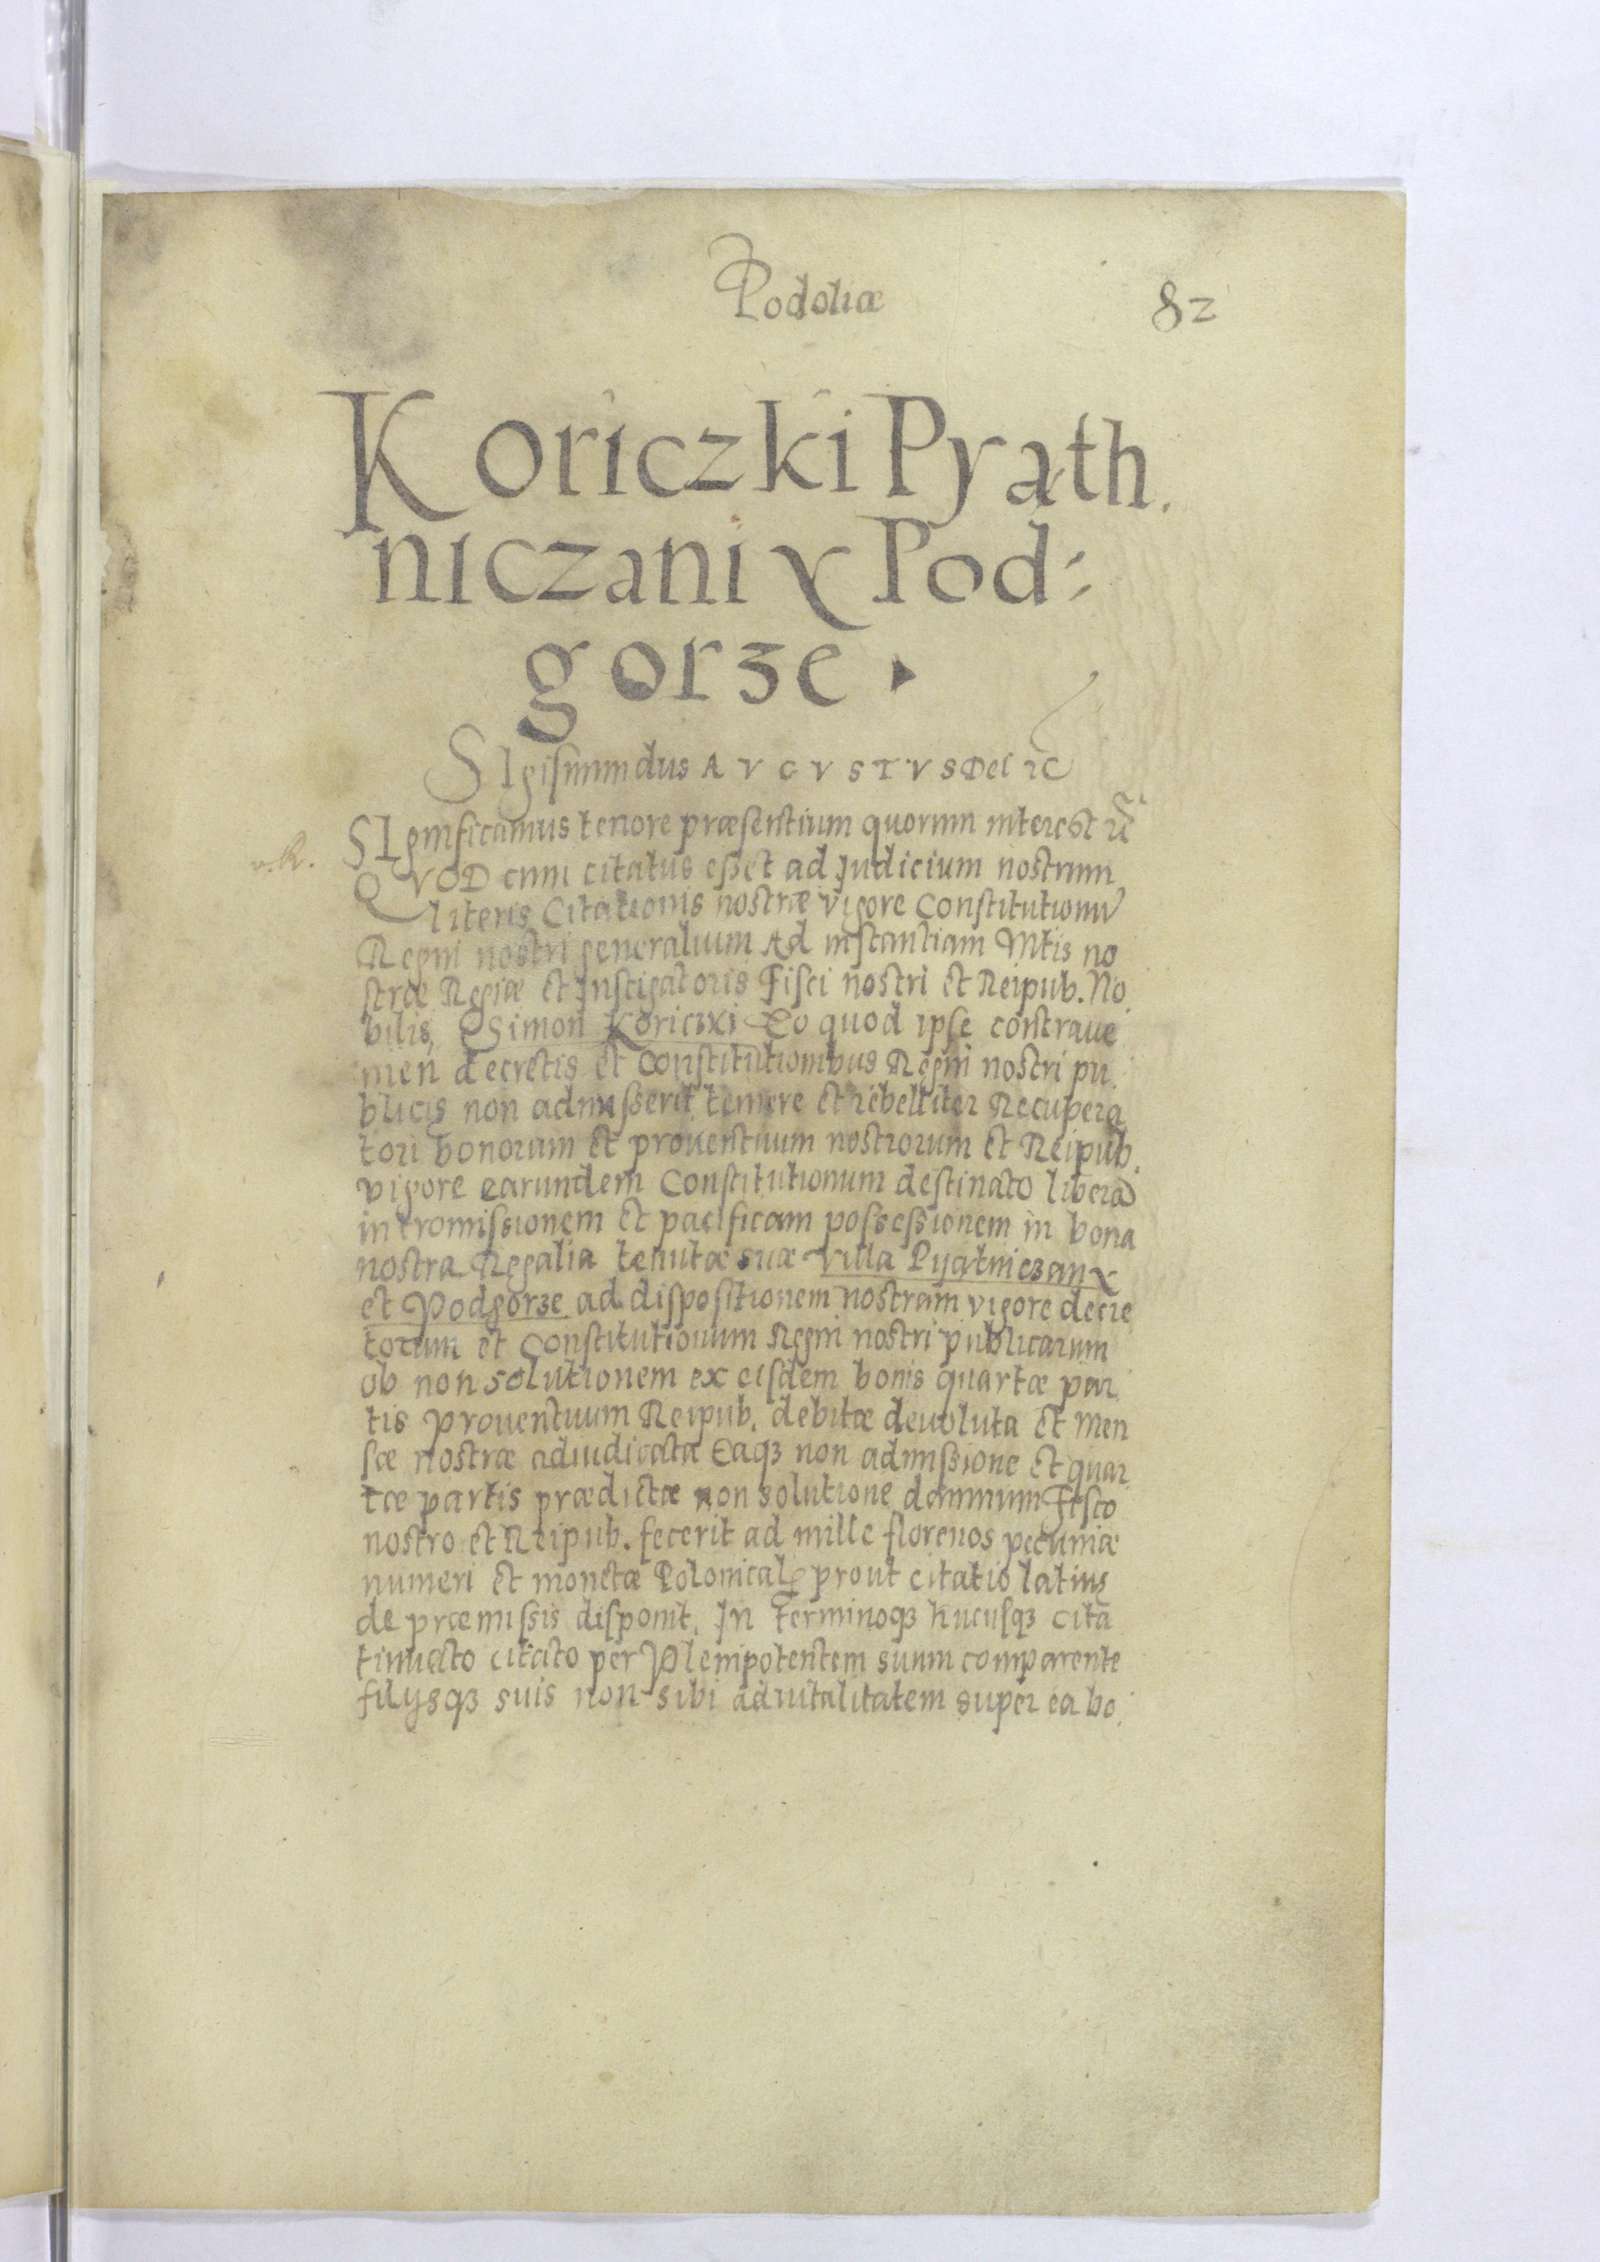 Podoliæ
82
Koriczki Pyath.
niczani y Pod:
gorze.
SIgismundus AVGVSTVS Dei rc
SIgnificamus tenore præsentium quorum interest rc
QVOD cum citatus esset ad Judicium nostrum
literis Citationis nostræ vigore Constitutionũ
Regni nostri generalium Ad instantiam Mtis no
stræ Regiæ et Instigatoris Fisci nostri et Reipub. No
bilis, Simon Koriczki Eo quod ipse contraue
nien decretis et constitutionibus Regni nostri pu.
blicis non admisserit temere et rebelliter Recupera
tori bonorum et prouentuum nostrorum et Reipub.
vigore earundem Constitutionum destinato liberã
intromissionem et pacificam possessionem in bona
nostra Regalia tenutæ suæ villa Pyatniczany
et Podgorze ad dispositionem nostram vigore decre
torum et Constitutionum Regni nostri publicarum
ob non solutionem ex eisdem bonis quartæ par
tis prouentuum Reipub. debitæ deuoluta et Men
sæ nostræ adiudicata Eaqꝫ non admissione et quar
tæ partis prædictæ non solutione damnum Fisco
nostro et Reipub. fecerit ad mille florenos pecuniæ
numeri et monetæ Polonicalꝭ prout citatio latius
de præmissis disponit. In terminoqꝫ hucusqꝫ cita
tinuato citato per Plenipotentem suum comparente
filysqꝫ suis non sibi aduitalitatem super ea bo.